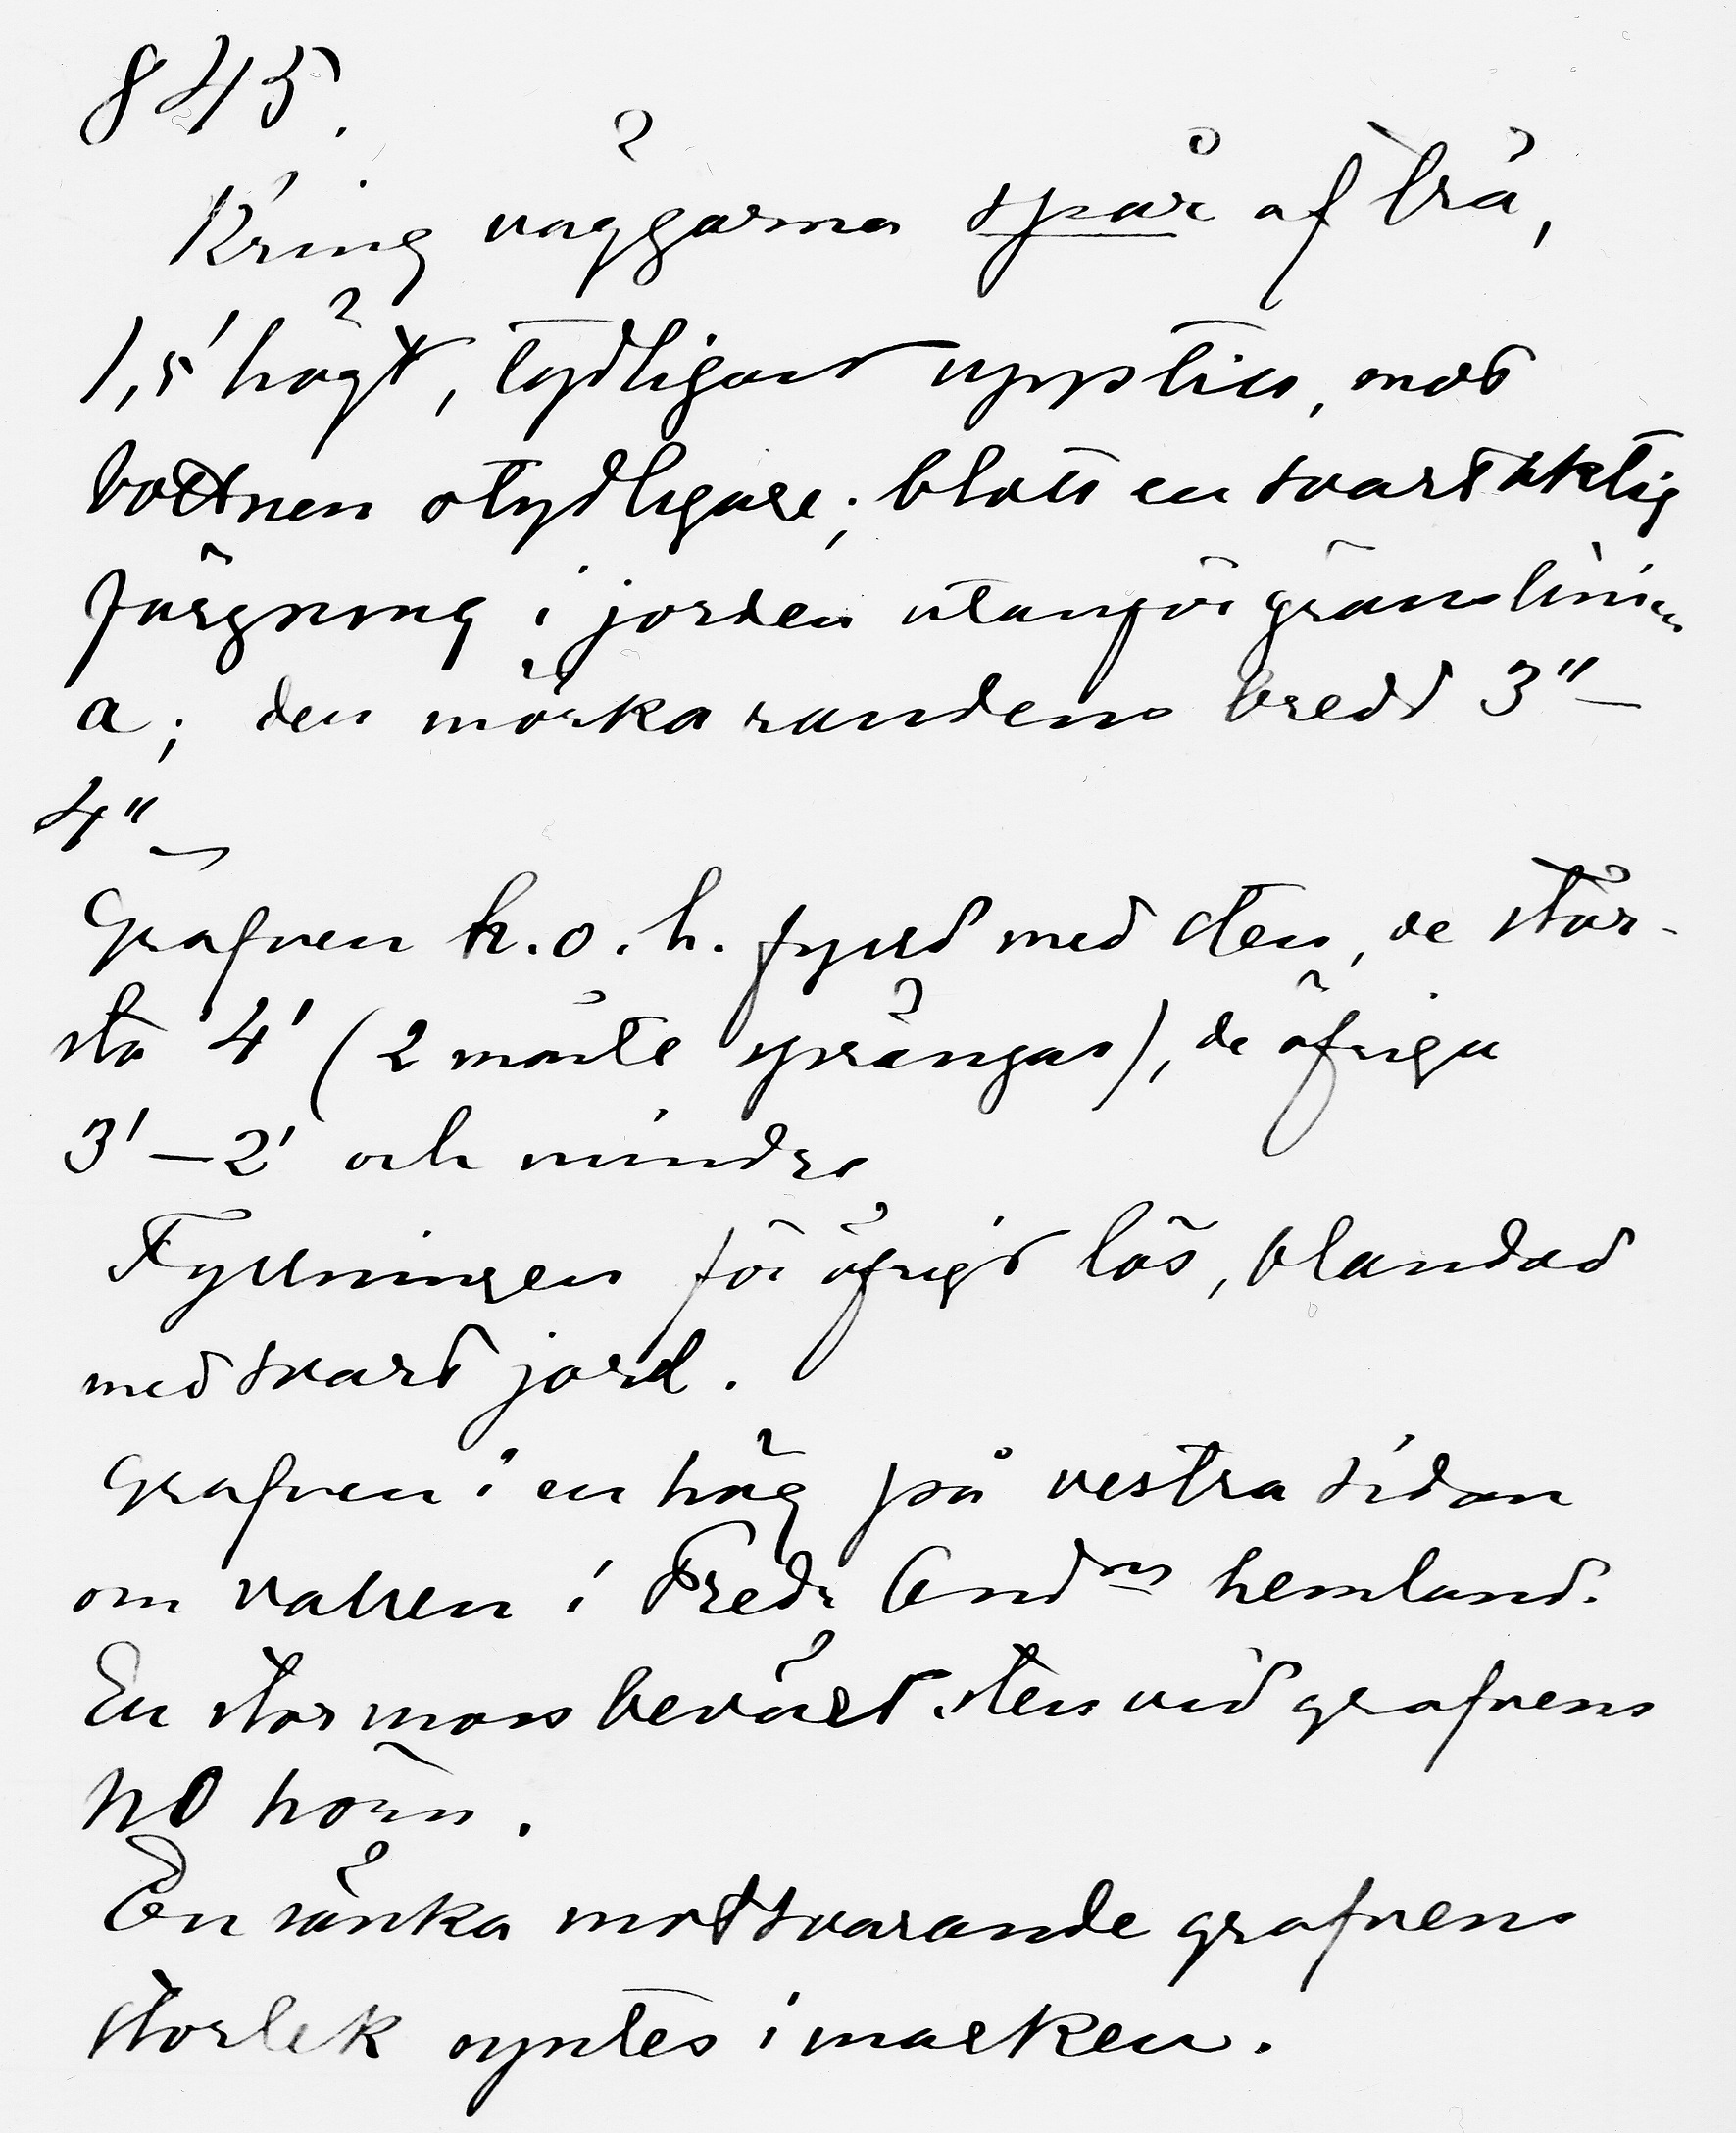 845.
Kring väggarna spår af trä,
1,5' högt, tydligast upptill, mot
bottnen otydligare; blott en svartaktig
färgning i jorden utanför gränslinien
a; den mörka randens bredd 3"—
4"
Grafven h. o. h. fylld med sten, de stör-
sta 4' (2 måste sprängas), de öfriga
3'—2' och mindre
Fyllningen för öfrigt lös, blandad
med svart jord.
Grafven i en hög på vestra sidan
om vallen i Fredr Andns hemland.
En stor mossbeväxt sten vid grafvens
NO hörn.
En sänka motsvarande grafvens
storlek syntes i marken.